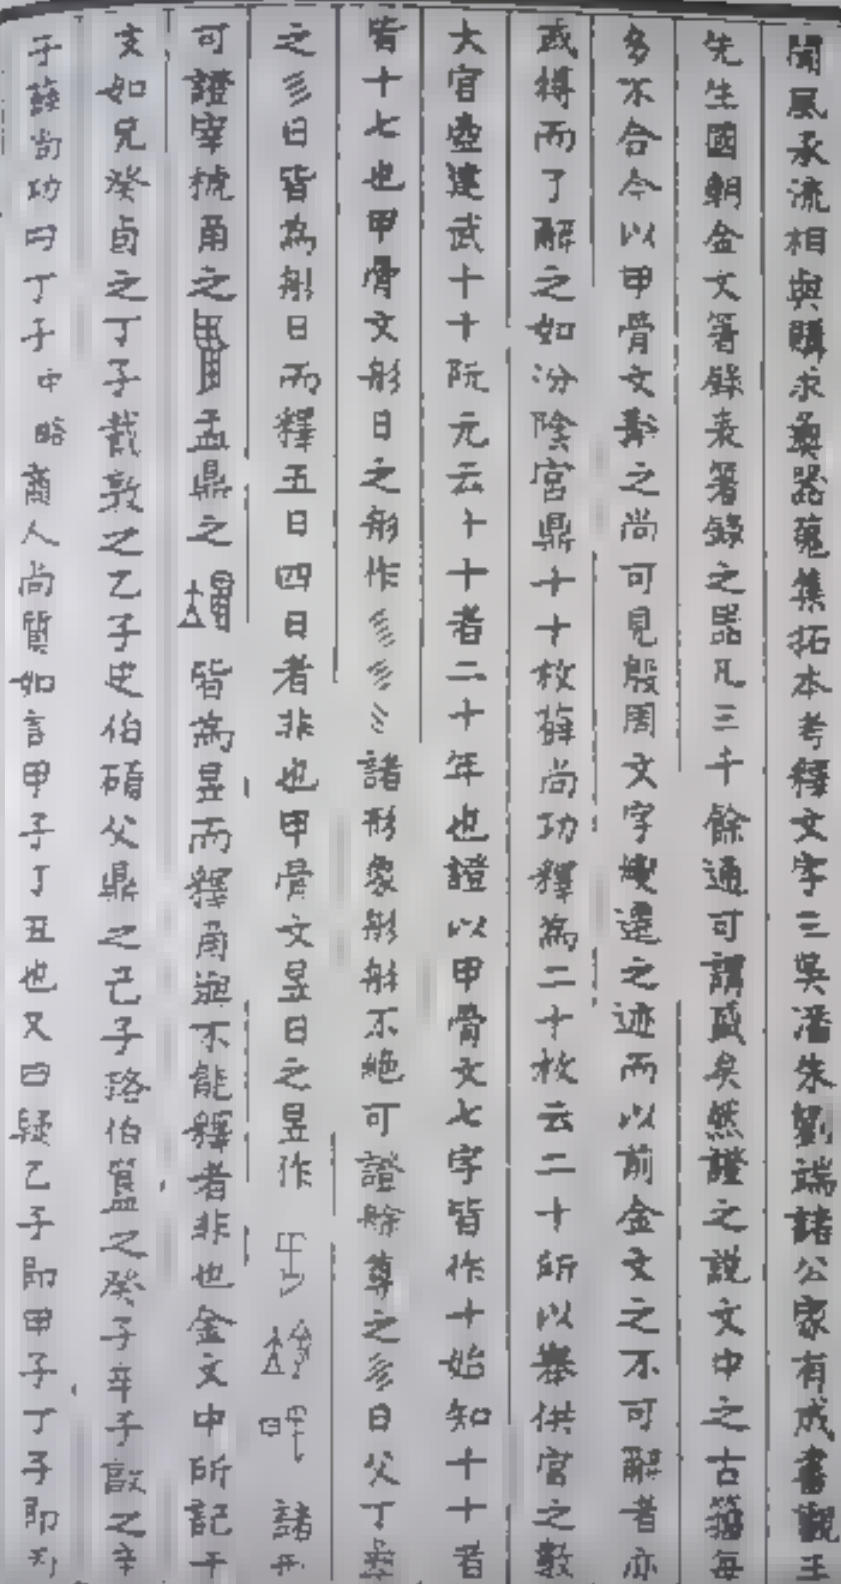 聞風承流相與購求彝器蒐集拓本考釋文字三吳潘朱劉端諸公家有成書觀王
先生國朝金文箸錄表箸錄之器凡三千餘通可謂盛矣然證之説文中之古籀每
多不合今以甲骨文斠之尚可見殷周文字嬗遷之迹而以前金文之不可解者亦
或得而了解之如汾陰宮鼎十十枚薛尚功釋為二十枚云二十所以舉供官之數
大官壺建武十十阮元云十十者二十年也證以甲骨文七字皆作十始知十十者
皆十七也甲骨文肜日之肜作彡彡彡諸形象肜肜不絶可證艅尊之彡日父丁彝
之彡日皆為肜日而釋五日四日者非也甲骨文昱日之昱作諸形
可證宰椃角之盂鼎之皆為昱而釋角不能釋者非也金文中所記干
支如兄癸卣之丁子敦之乙子史伯碩父鼎之己子伯簋之癸子辛子敦之辛
子薛尚功曰丁子中略商人尚質如言甲子丁丑也又曰疑乙子即甲子丁子即